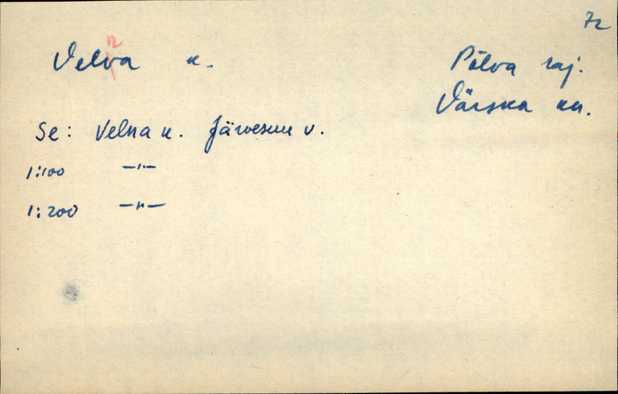 72
Velva k. Põlva raj.
n
Värska kn.
Se: Velna k. Järvesuu v.
1:100 —"—
1:200 —"—